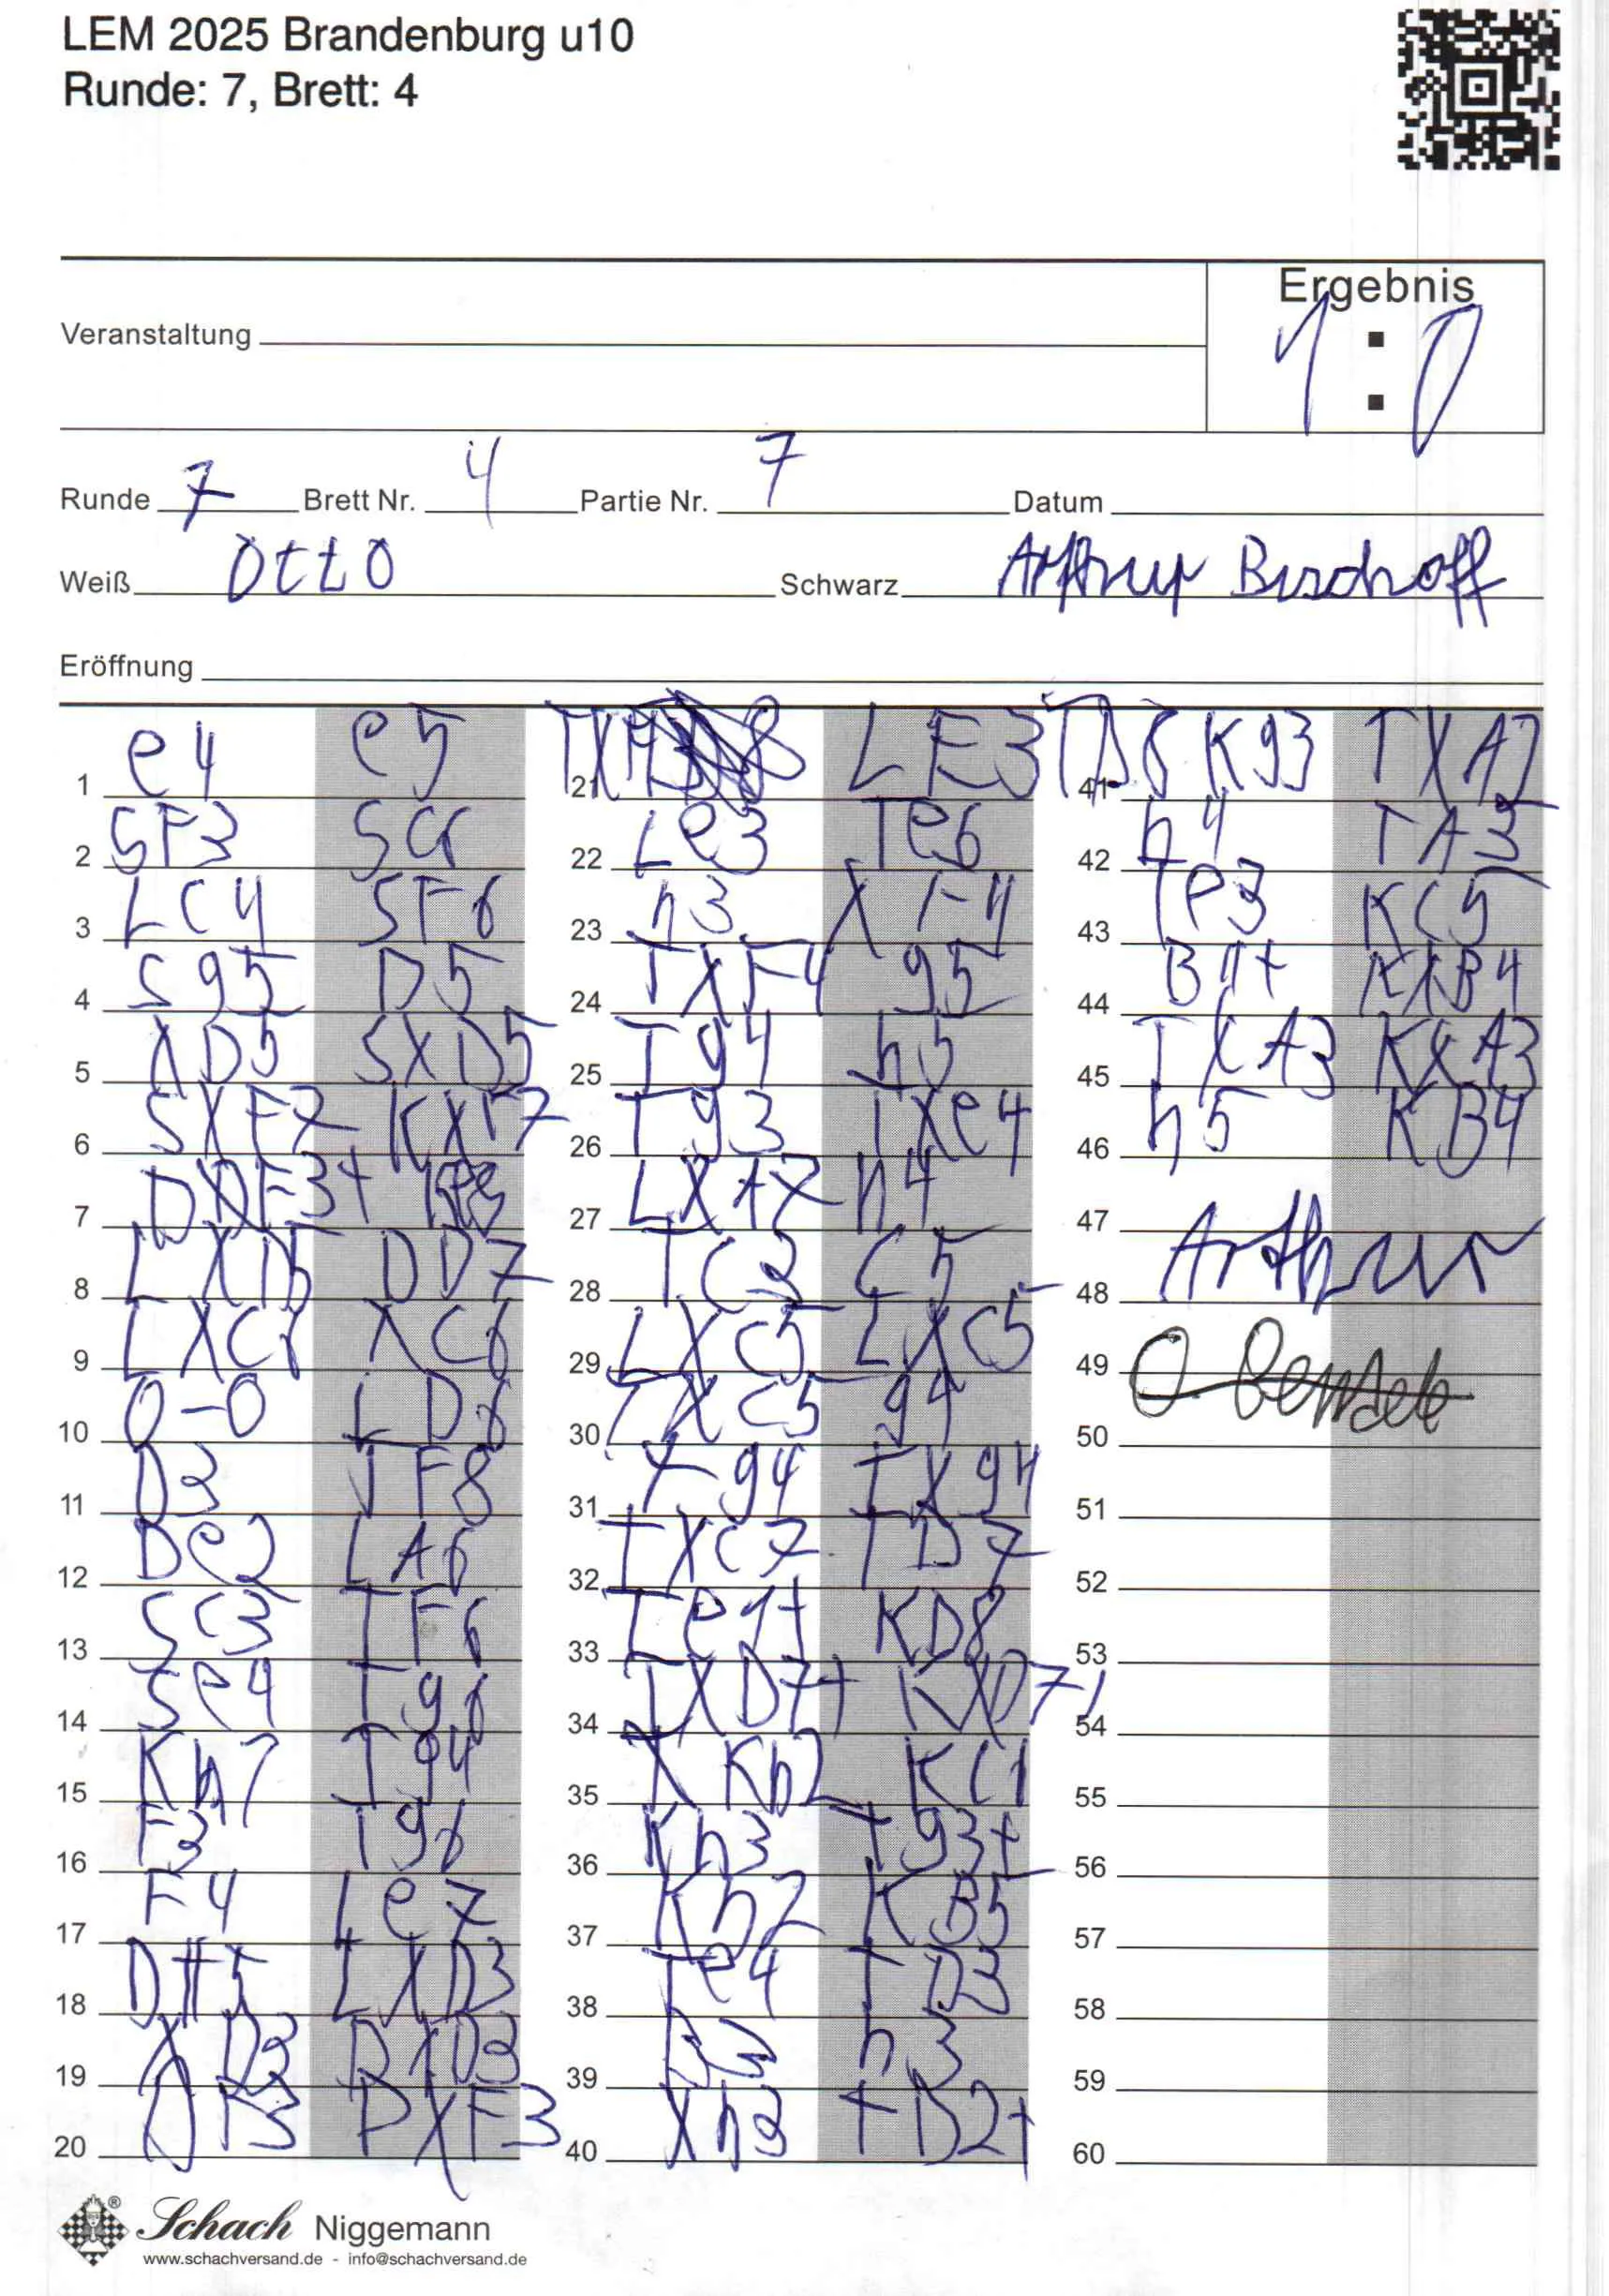 LEM 2025 Brandenburg u10
Runde: 7, Brett: 4
Ergebnis
1 : 0
Veranstaltung
Runde 7 Brett Nr. 4 Partie Nr. 7 Datum
Weiß Otto Schwarz Arthur Bischoff
Eröffnung
1 e4 e5
2 SF3 SC6
3 LC4 SF6
4 Sg5 D5
5 XD5 SXD5
6 SXF7 KXF7
7 DF3+
8 LXD5 DD7
9 LXC6 XC6
10 0-0 LD6
11 D3 TF8
12 De2 LA6
13 SC3 TF6
14 Se4 Tg6
15 Kh1 Tg4
16 F3 Tg6
17 F4 Le7
18 DH5 LXD3
19 XD3 DXD3
20 DF3 DXF3
21 LE3
22 Le3 Te6
23 h3 XF4
24 TXF4 g5
25 Tg4 h5
26 Tg3 TXe4
27 LXA7 h4
28 TC3 C5
29 LXC5 LXC5
30 TXC5 g4
31 Xg4 TXg4
32 TXC7 TD7
33 Te1+ KD8
34 TXD7+ KXD7
35 Kh2 KC6
36 Kh3 Tg3+
37 Kh2 KB5
38 Te4 TD3
39 h3
40 Xh3 TD2+
41 Kg3 TXA2
42 h4 TA3
43 Te3 KC5
44 B4+ KXB4
45 TXA3 KXA3
46 h5 KB4
47
48 Arthur
49
50
51
52
53
54
55
56
57
58
59
60
Schach Niggemann
www.schachversand.de - info@schachversand.de